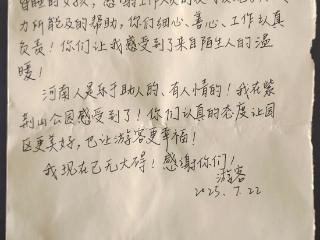 力所能及的帮助,你们细心、善心、工作认真
负责!你们让我感受到了来自陌生人的温
暖!
河南人是乐于助人的、有人情的!我在紫
荆山公园感受到了!你们认真的态度让园
区更美好,也让游客更幸福!
我现在已无大碍!感谢你们!
游客
2025.7.22